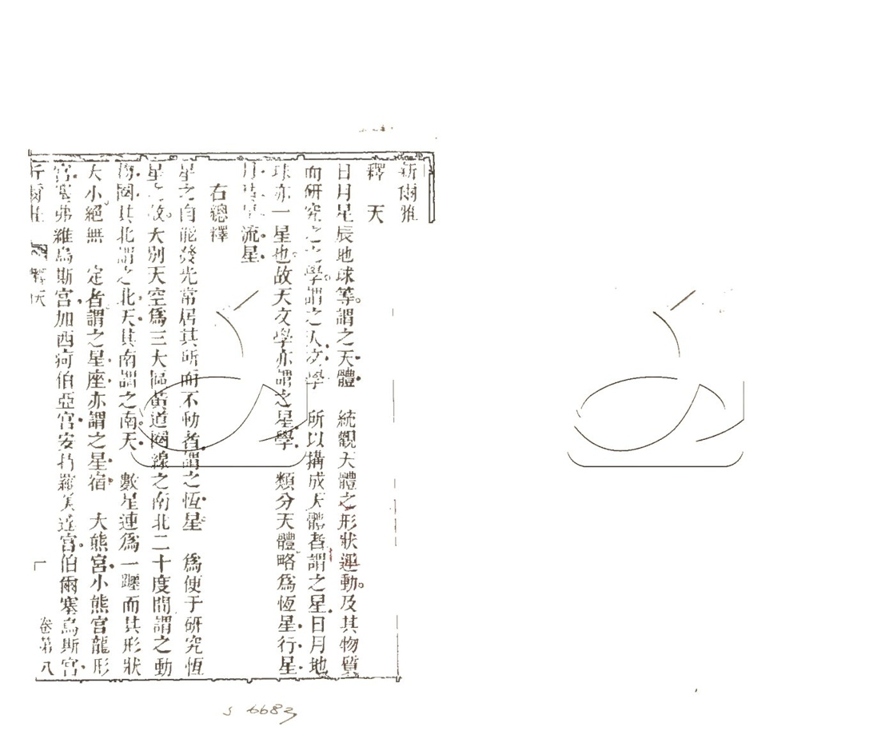 新爾雅
釋天
日月星辰地球等。謂之天體 統觀天體之形狀運動。及其物質
而研究之之學。謂之天文學 所以搆成天體者。謂之星。日月地
球亦一星也。故天文學亦謂之星學 類分天體。略爲恆星行星
流星
右總釋
星之自能發光。常居其所而不動者。謂之恆星 爲便于研究恆
星之故。大別天空爲三大區。黃道圈線之南北二十度間謂之動
其北謂之北天。其南謂之南天 數星連爲一躔。而其形狀
大小絕無 定者。謂之星座。亦謂之星宿 大熊宮小熊宮龍形
宮 弗雅烏斯宮加西荷伯亞宮安 羅美達宮伯爾塞烏斯宮
新爾雅 釋天 卷第八
S 6683